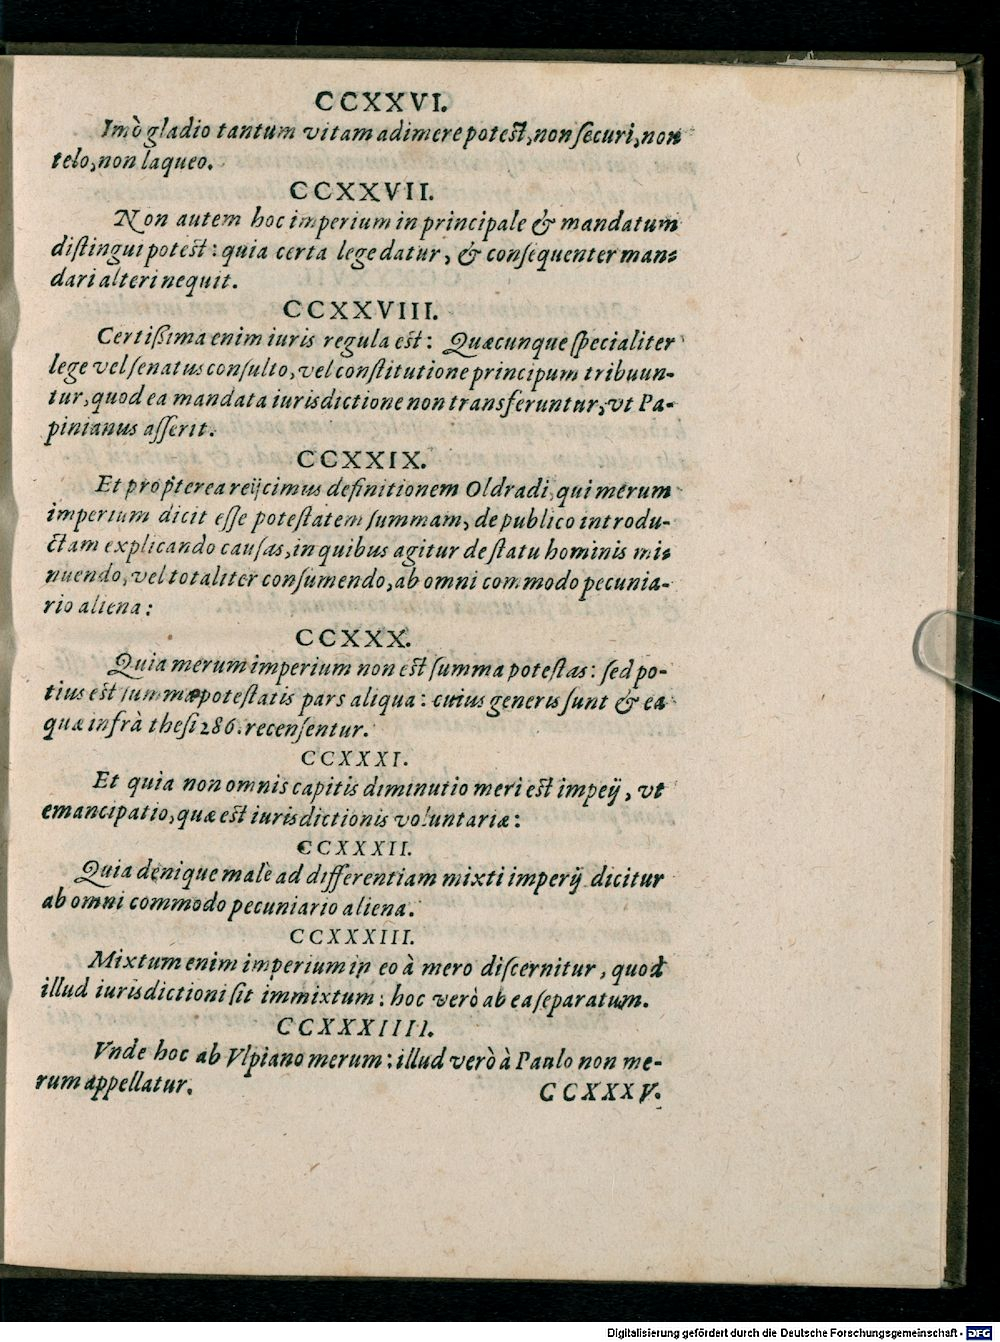 CCXXVI.
Imò gladio tantum vitam adimere potest, non securi, non
telo, non laqueo.
CCXXVII.
Non autem hoc imperium in principale & mandatum
distingui potest: quia certa lege datur, & consequenter man-
dari alteri nequit.
CCXXVIII.
Certißima enim iuris regula est: Quæcunque specialiter
lege vel senatus consulto, vel constitutione principum tribuun-
tur, quod ea mandata iurisdictione non transferuntur, vt Pa-
pinianus asserit.
CCXXIX.
Et propterea reijcimus definitionem Oldradi, qui merum
imperium dicit esse potestatem summam, de publico introdu-
ctam explicando causas, in quibus agitur de statu hominis mi-
nuendo, vel totaliter consumendo, ab omni commodo pecunia-
rio aliena:
CCXXX.
Quia merum imperium non est summa potestas: sed po-
tius est summæ potestatis pars aliqua: cuius generis sunt & ea
quæ infrà thesi 286. recensentur.
CCXXXI.
Et quia non omnis capitis diminutio meri est impeij, vt
emancipatio, quæ est iurisdictionis voluntariæ:
CCXXXII.
Quia denique malè ad differentiam mixti imperij dicitur
ab omni commodo pecuniario aliena.
CCXXXIII.
Mixtum enim imperium in eo à mero discernitur, quod
illud iurisdictioni sit immixtum: hoc verò ab ea separatum.
CCXXXIIII.
Vnde hoc ab Vlpiano merum: illud verò à Paulo non me-
rum appellatur.
CCXXXV.
Digitalisierung gefördert durch die Deutsche Forschungsgemeinschaft - DFG